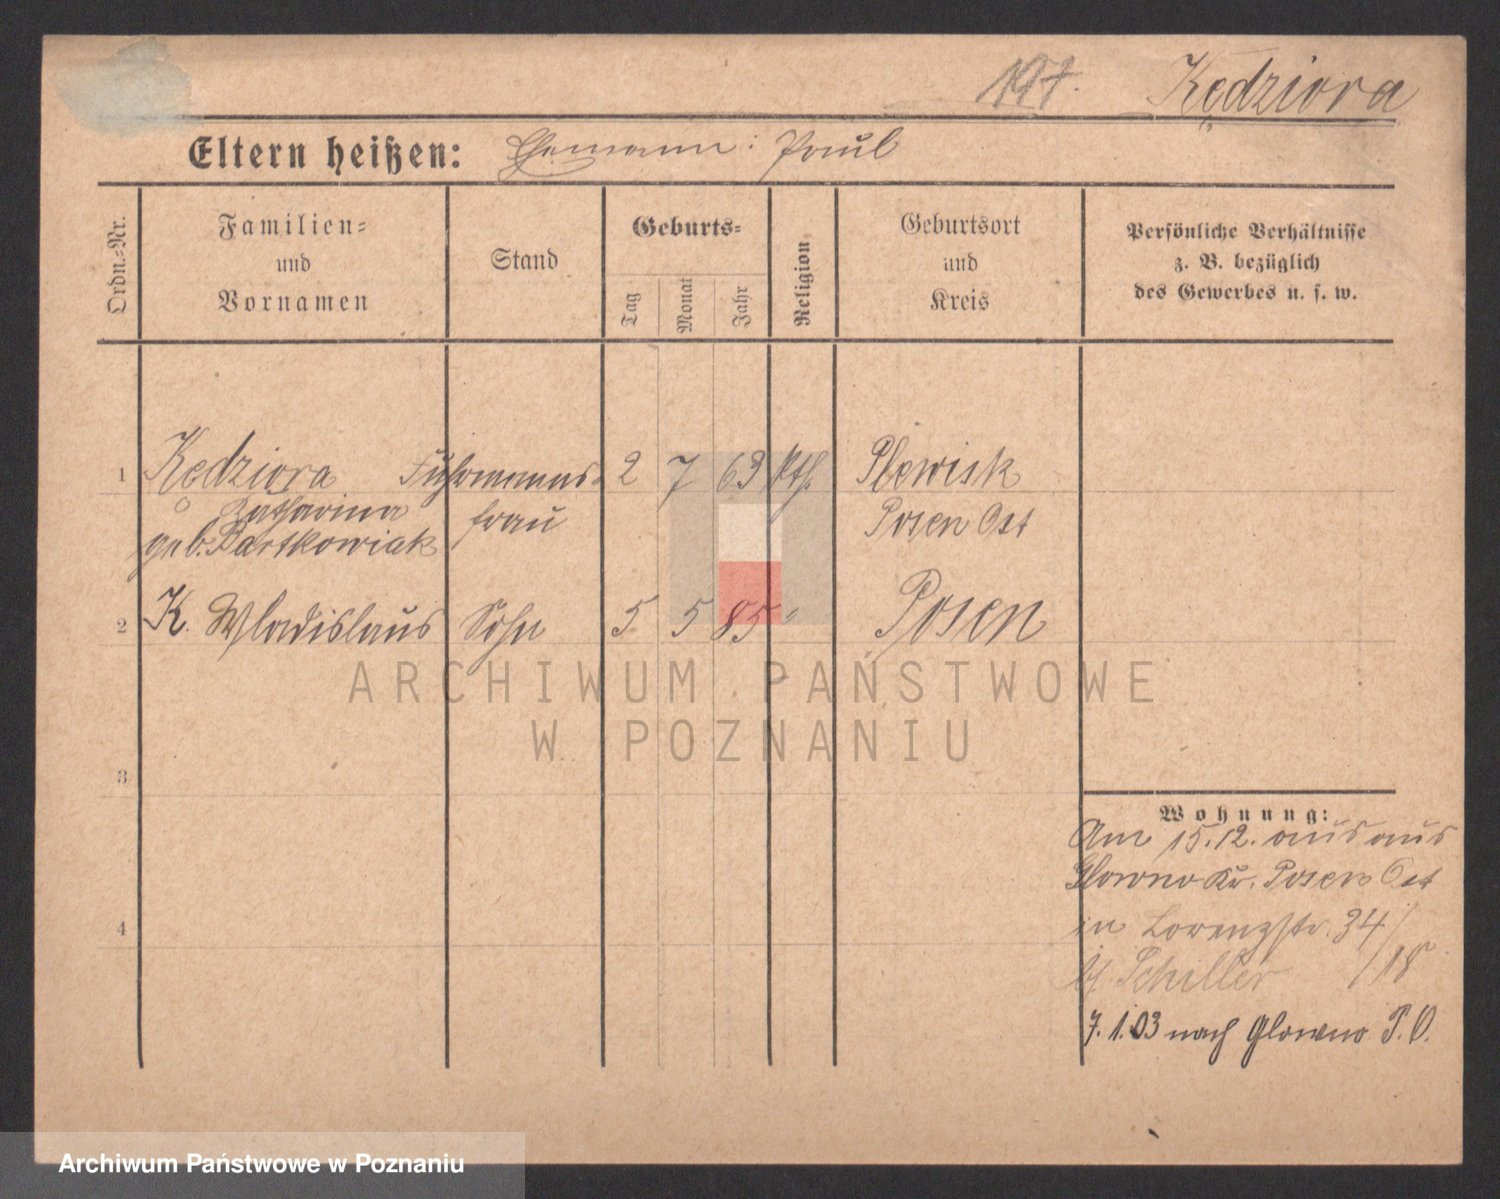 197. Kędziora
Eltern heißen: Ehemann: Paul
Ordn.-Nr.
Familien-
und
Vornamen
Stand
Geburts-
Tag
Monat
Jahr
Religion
Geburtsort
und
Kreis
Persönliche Verhältnisse
z. B. bezüglich
des Gewerbes u. s. w.
1 Kędziora Fuhrmanns- 2 7 63 kth. Plewisk
Katharina frau Posen Ost
geb. Bartkowiak
2 K. Wladislaus Sohn 5 5 85 " Posen
3
4
ARCHIWUM PAŃSTWOWE
W POZNANIU
Wohnung:
Am 15.12. aus aus
Glowno Kr. Posen Ost
in Lorenzstr. 34/
b/ Schiller /18
7.1.03 nach Glowno P. O.
Archiwum Państwowe w Poznaniu